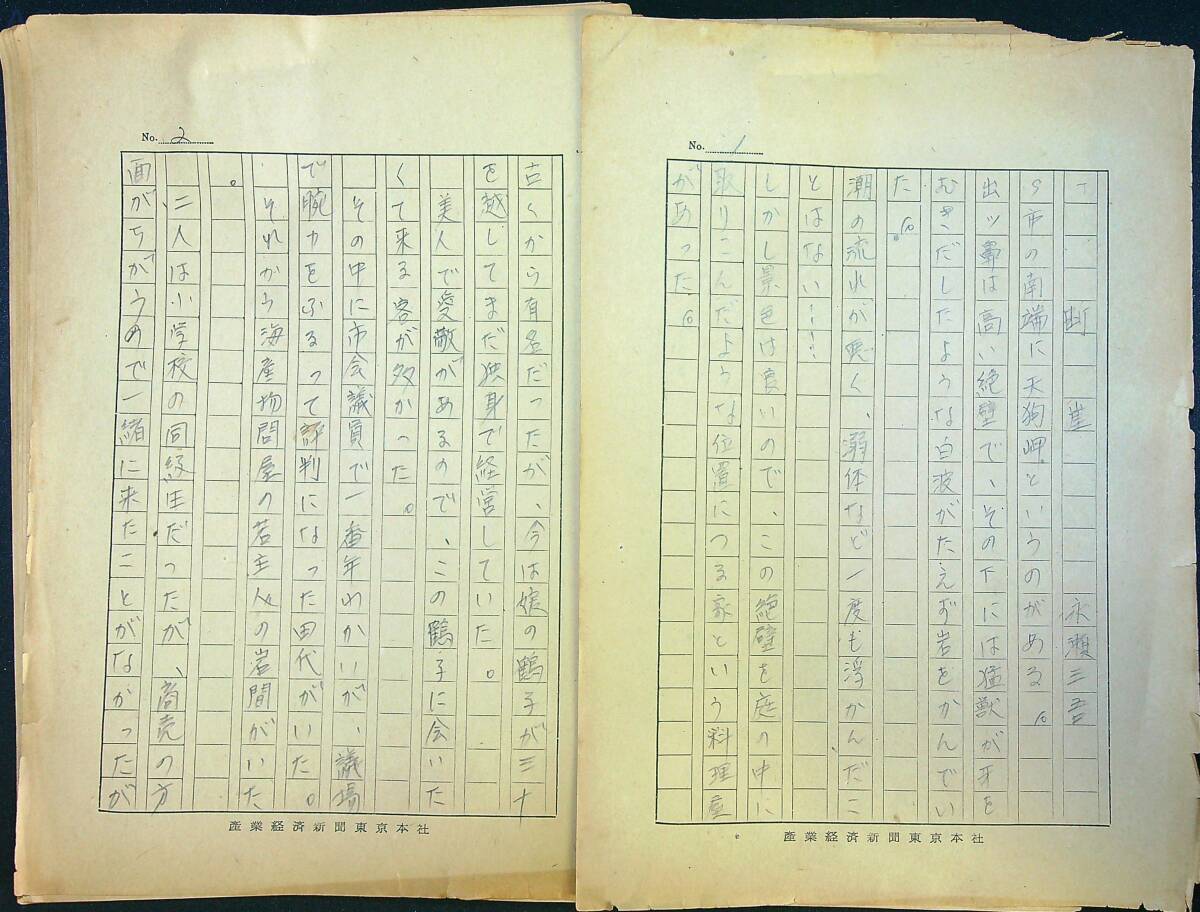 No. 1
断崖 永瀬三吾
S市の南端に天狗岬というのがある。
出ッ鼻は高い絶壁で、その下には猛獣が牙を
むきだしたような白波がたえず岩をかんでい
た。
潮の流れが悪く、溺体など一度も浮かんだこ
とはない……
しかし景色は良いので、この絶壁を庭の中に
取りこんだような位置につる家という料理屋
があった。
産業経済新聞東京本社
No. 2
古くから有名だったが、今は娘の鶴子が三十
を越してまだ独身で経営していた。
美人で愛敬があるので、この鶴子に会いた
くて来る客が多かった。
その中に市会議員で一番年わかいが、議場
で腕力をふるって評判になった田代がいた。
それから海産物問屋の若主人の岩間がいた
。
二人は小学校の同級生だったが、商売の方
面がちがうので一緒に来たことがなかったが
産業経済新聞東京本社